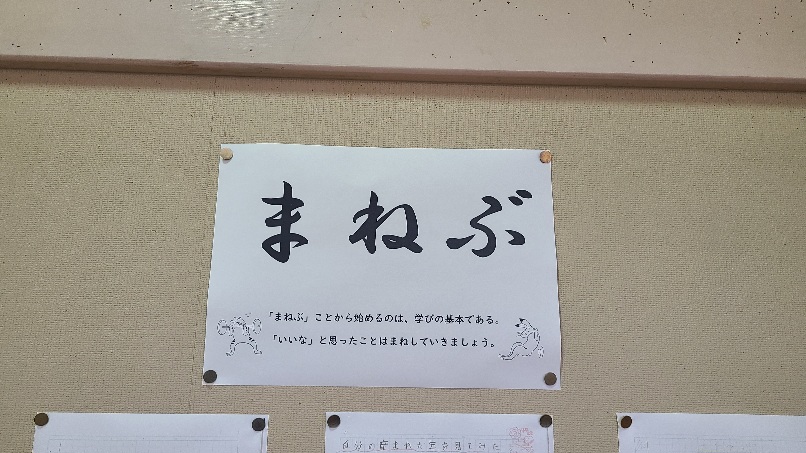 まねぶ
「まねぶ」ことから始めるのは、学びの基本である。
「いいな」と思ったことはまねしていきましょう。
自分の産まれた